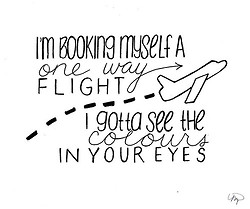 I'M BOOKING MYSELF A
one way
FLIGHT
I gotta see the
colours
IN YOUR EYES